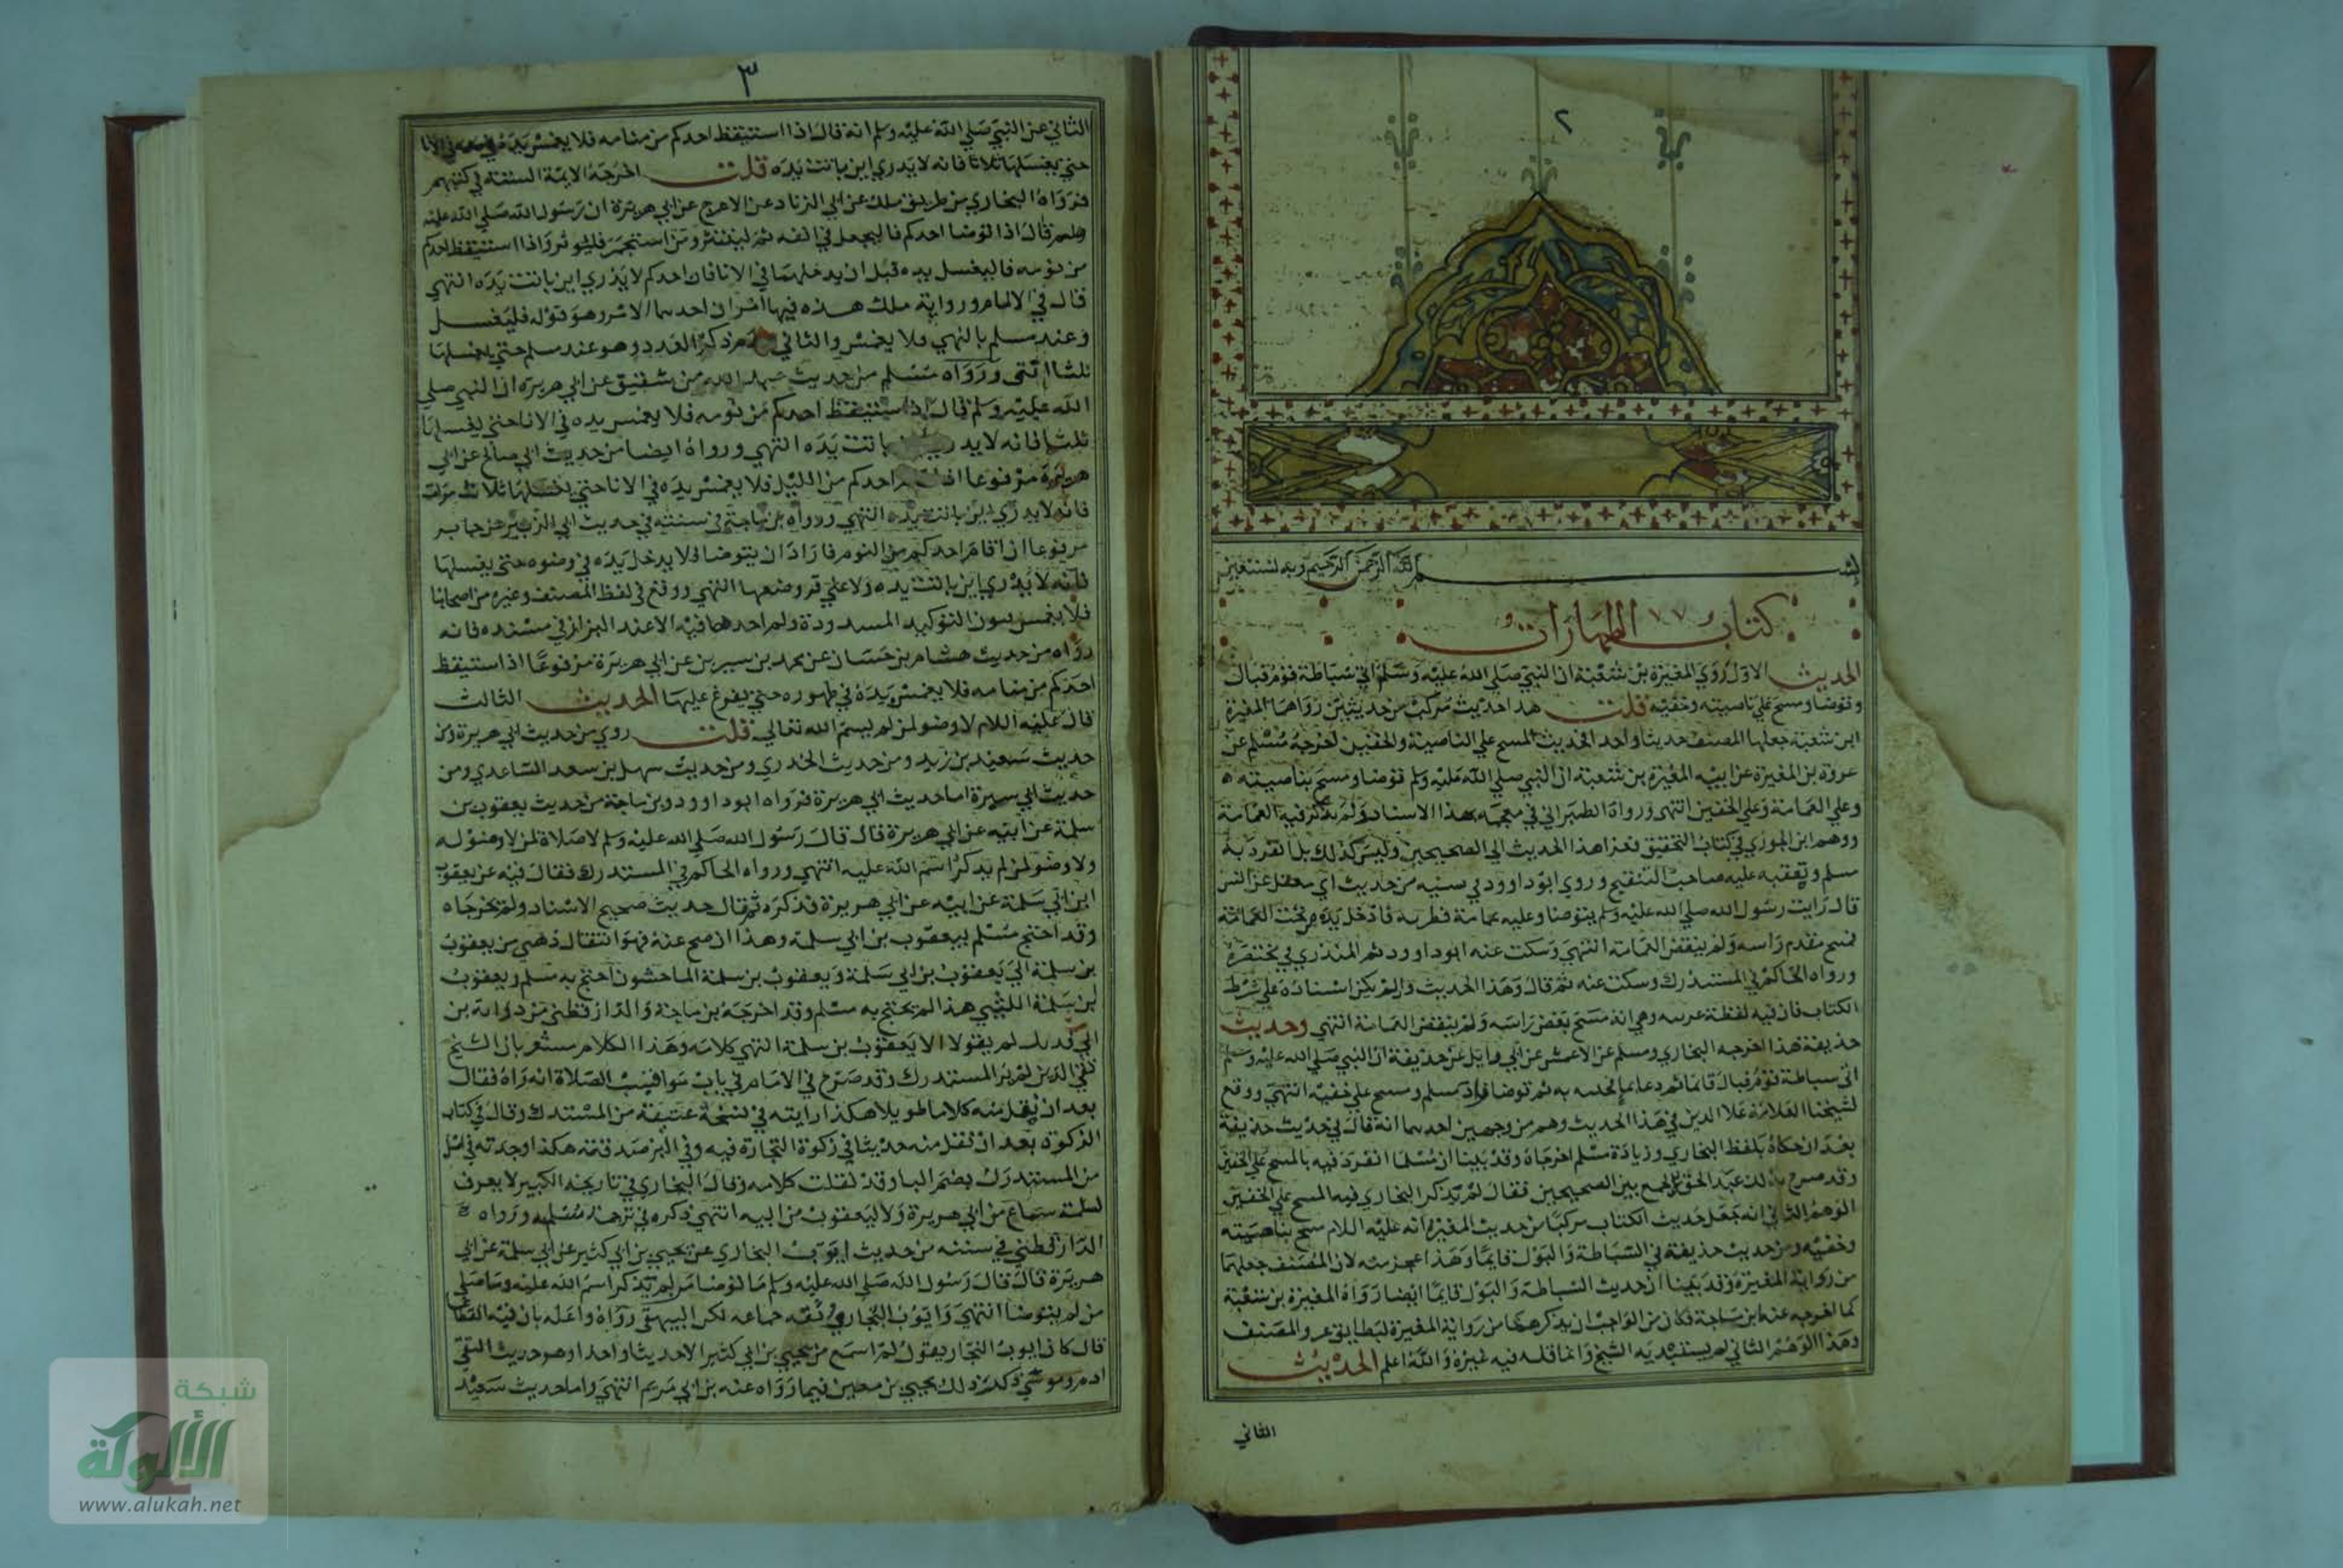 ٢
بسم الله الرحمن الرحيم وبه نستعين
كتاب الطهارات
الحديث الاول روي المغيرة بن شعبة ان النبي صلي الله عليه وسلم اتي سباطة قوم فبال
وتوضا ومسح علي ناصيته وخفيه قلت هذا حديث مركب من حديثين رواهما المغيرة
ابن شعبة جعلهما المصنف حديثا واحدا فحديث المسح علي الناصية والخفين اخرجه مسلم عن
عروة بن المغيرة عن ابيه المغيرة بن شعبة ان النبي صلي الله عليه وسلم توضا ومسح بناصيته
وعلي العمامة وعلي الخفين انتهي ورواه الطبراني في معجمه بهذا الاسناد ولم يذكر فيه العمامة
ووهم ابن الجوزي في كتاب التحقيق فعزا هذا الحديث الي الصحيحين وليس كذلك بل انفرد به
مسلم وتعقبه عليه صاحب التنقيح وروي ابو داوود في سننه من حديث ابي معقل عن انس
قال رايت رسول الله صلي الله عليه وسلم يتوضا وعليه عمامة قطرية فادخل يده من تحت العمامة
فمسح مقدم راسه ولم ينقض العمامة انتهي وسكت عنه ابو داوود ثم المنذري في مختصره
ورواه الحاكم في المستدرك وسكت عنه ثم قال وهذا الحديث وان لم يكن اسناده علي شرط
الكتاب فان فيه لفظة غريبه وهي انه مسح بعض راسه ولم ينقض العمامة انتهي وحديث
حذيفة هذا اخرجه البخاري ومسلم عن الاعمش عن ابي وايل عن حذيفة ان النبي صلي الله عليه وسلم
اتي سباطة قوم فبال قايما ثم دعا بما فجئته به ثم توضا زاد مسلم ومسح علي خفيه انتهي ووقع
لشيخنا العلامة علا الدين في هذا الحديث وهم من وجهين احدهما انه قال في حديث حذيفة
بعد ان حكاه بلفظ البخاري وزيادة مسلم اخرجاه وقد بينا ان مسلما انفرد فيه بالمسح علي الخفين
وقد صرح بذلك عبد الحق في الجمع بين الصحيحين فقال لم يذكر البخاري فيه المسح علي الخفين
الوهم الثاني انه جعل حديث الكتاب مركبا من حديث المغيرة انه عليه اللام مسح بناصيته
وخفيه ومن حديث حذيفة في السباطة والبول قايما وهذا عجز منه لان المصنف جعلهما
من رواية المغيرة وقد بينا ان حديث السباطة والبول قايما ايضا رواه المغيرة بن شعبة
كما اخرجه عنه ابن ماجة فكان من الواجب ان يذكرهما من رواية المغيرة ليطابق عزو المصنف
وهذا الوهم الثاني لم يستبد به الشيخ وانما قلد فيه غيره والله اعلم الحديث
الثاني
٣
الثاني عن النبي صلي الله عليه وسلم انه قال اذا استيقظ احدكم من منامه فلا يغمس يده في الانا
حتي يغسلها ثلاثا فانه لا يدري اين باتت يده قلت اخرجه الايمة الستة في كتبهم
فرواه البخاري من طريق ملك عن ابي الزناد عن الاعرج عن ابي هريرة ان رسول الله صلي الله عليه
وسلم قال اذا توضا احدكم فاليجعل في انفه ثم لينتثر ومن استجمر فليوتر واذا استيقظ احدكم
من نومه فاليغسل يده قبل ان يدخلهما في الانا فان احدكم لا يدري اين باتت يده انتهي
قال في الالمام ورواية ملك هذه فيها امران احدهما الامر وهو قوله فليغسل
وعند مسلم بالنهي فلا يغمس والثاني ذكر العدد وهو عند مسلم حتي يغسلها
ثلثا انتهى ورواه مسلم من حديث عبد الله بن شقيق عن ابي هريرة ان النبي صلي
الله عليه وسلم قال اذا استيقظ احدكم من نومه فلا يغمس يده في الانا حتي يغسلها
ثلثا فانه لا يدري باتت يده انتهي ورواه ايضا من حديث ابي صالح عن ابي
هريرة مرفوعا اذا قام احدكم من الليل فلا يغمس يده في الانا حتي يغسلها ثلاث مرات
فانه لا يدري اين باتت يده انتهي ورواه بن ماجة في سننه في حديث ابي الزبير عن جابر
مرفوعا اذا قام احدكم من النوم فاراد ان يتوضا فلا يدخل يده في وضوه حتي يغسلها
فانه لا يدري اين باتت يده ولا علي ما وضعها انتهي ووقع في لفظ المصنف وغيره من اصحابنا
فلا يغمسن بنون التوكيد المسددة ولم اجدها فيه الا عند البزار في مسنده فانه
رواه من حديث هشام بن حسان عن محمد بن سيرين عن ابي هريرة مرفوعا اذا استيقظ
احدكم من منامه فلا يغمسن يده في طهوره حتي يفرغ عليها الحديث الثالث
قال عليه اللام لا وضو لمن لم يسم الله تعالي قلت روي من حديث ابي هريرة ومن
حديث سعيد بن زيد ومن حديث الخدري ومن حديث سهل بن سعد الساعدي ومن
حديث ابي سبرة اما حديث ابي هريرة فرواه ابو داوود وبن ماجة من حديث يعقوب بن
سلمة عن ابيه عن ابي هريرة قال قال رسول الله صلي الله عليه وسلم لا صلاة لمن لا وضو له
ولا وضو لمن لم يذكر اسم الله عليه انتهي ورواه الحاكم في المستدرك فقال فيه عن يعقوب
ابن ابي سلمة عن ابيه عن ابي هريرة فذكره ثم قال حديث صحيح الاسناد ولم يخرجاه
وقد احتج مسلم بيعقوب بن ابي سلمة وهذا ان صح عنه فهو انتقال ذهني من يعقوب
بن سلمة الي يعقوب بن ابي سلمة ويعقوب بن سلمة الماجشون احتج به مسلم ويعقوب
ابن سلمة الليثي هذا لم يحتج به مسلم وقد اخرجه بن ماجة والدارقطني من رواية بن
ابي فديك لم يقولا الا يعقوب بن سلمة انتهي كلامه وهذا الكلام مشعر بان الشيخ
تقي الدين لم ير المستدرك وقد صرح في الامام في باب مواقيت الصلاة انه راه فقال
بعد ان نقل منه كلاما طويلا هكذا رايته في نسخة عتيقة من المستدرك وقال في كتاب
الزكوة بعد ان نقل منه حديثا في زكوة التجارة فيه وفي البز صدقته هكذا وجدته في اصل
من المستدرك بضم البا وقد نقلت كلامه وقال البخاري في تاريخه الكبير لا يعرف
لسلمة سماع من ابي هريرة ولا ليعقوب من ابيه انتهي ذكره في ترجمة سلمة ورواه
الدارقطني في سننه من حديث ايوب البخاري عن يحيي بن ابي كثير عن ابي سلمة عن ابي
هريرة قال قال رسول الله صلي الله عليه وسلم ما توضا من لم يذكر اسم الله عليه وما صلي
من لم يتوضا انتهي وايوب النجار ثقه جماعه لكن البيهقي رواه واعله بان فيه انقطاعا
قال كان ايوب النجار يقول لم اسمع من يحيي بن ابي كثير الا حديثا واحدا وهو حديث التقي
ادم وموسي ذكر ذلك يحيي بن معين فيما رواه عنه بن ابي مريم انتهي واما حديث سعيد
شبكة
الألوكة
www.alukah.net